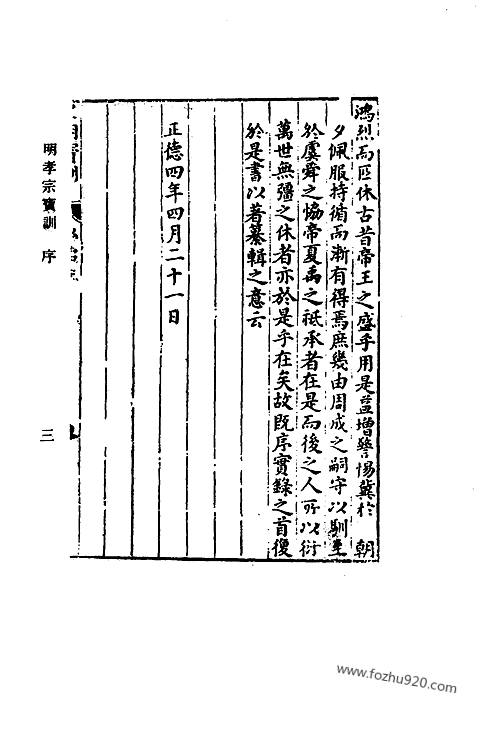 鴻烈而匹休古昔帝王之盛乎用是益增警惕冀於 朝
夕佩服持循而漸有得焉庶幾由周成之嗣守以馴至
於虞舜之協帝夏禹之祗承者在是而後之人所以衍
萬世無疆之休者亦於是乎在矣故既序實錄之首復
於是書以著纂輯之意云
正德四年四月二十一日
明孝宗寶訓 序
三
www.fozhu920.com